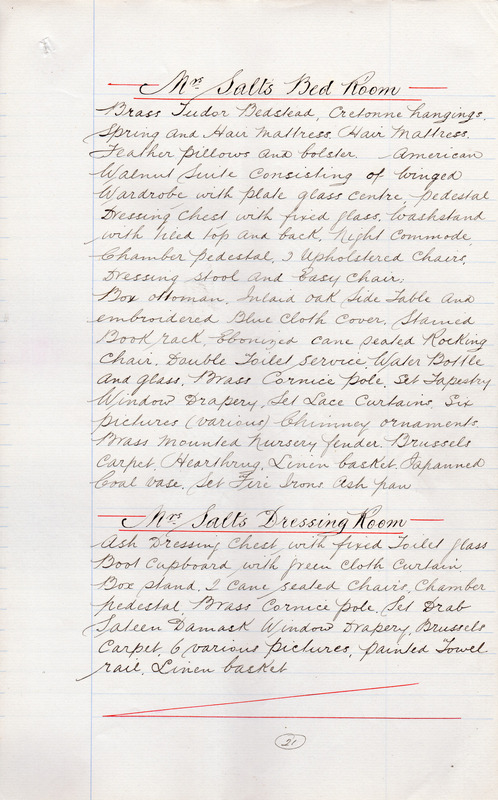 Mrs Salts Bed Room
Brass Tudor Bedstead, Cretonne hangings,
Spring and Hair Mattress, Hair Mattress,
Feather pillows and bolster. American
Walnut Suite consisting of winged
Wardrobe with plate glass centre, pedestal
Dressing Chest with fixed glass, Washstand
with tiled top and back, Night Commode,
Chamber pedestal, 2 Upholstered Chairs,
Dressing stool and Easy Chair,
Box ottoman, Inlaid oak Side Table and
embroidered Blue Cloth Cover, Stained
Book rack, Ebonized cane seated Rocking
Chair, Double Toilet service, Water Bottle
and glass, Brass Cornice pole, Set Tapestry
Window Drapery, Set Lace Curtains, Six
pictures (various) Chimney ornaments,
Brass mounted Nursery fender, Brussels
Carpet, Hearthrug, Linen basket, Japanned
Coal vase, Set Fire Irons, Ash pan
Mrs Salts Dressing Room
Ash Dressing Chest with fixed Toilet glass
Boot Cupboard with green cloth Curtain
Box stand, 2 Cane seated Chairs, Chamber
pedestal, Brass Cornice pole, Set Drab
Sateen Damask Window Drapery, Brussels
Carpet, 6 various pictures, painted Towel
rail, Linen basket
21